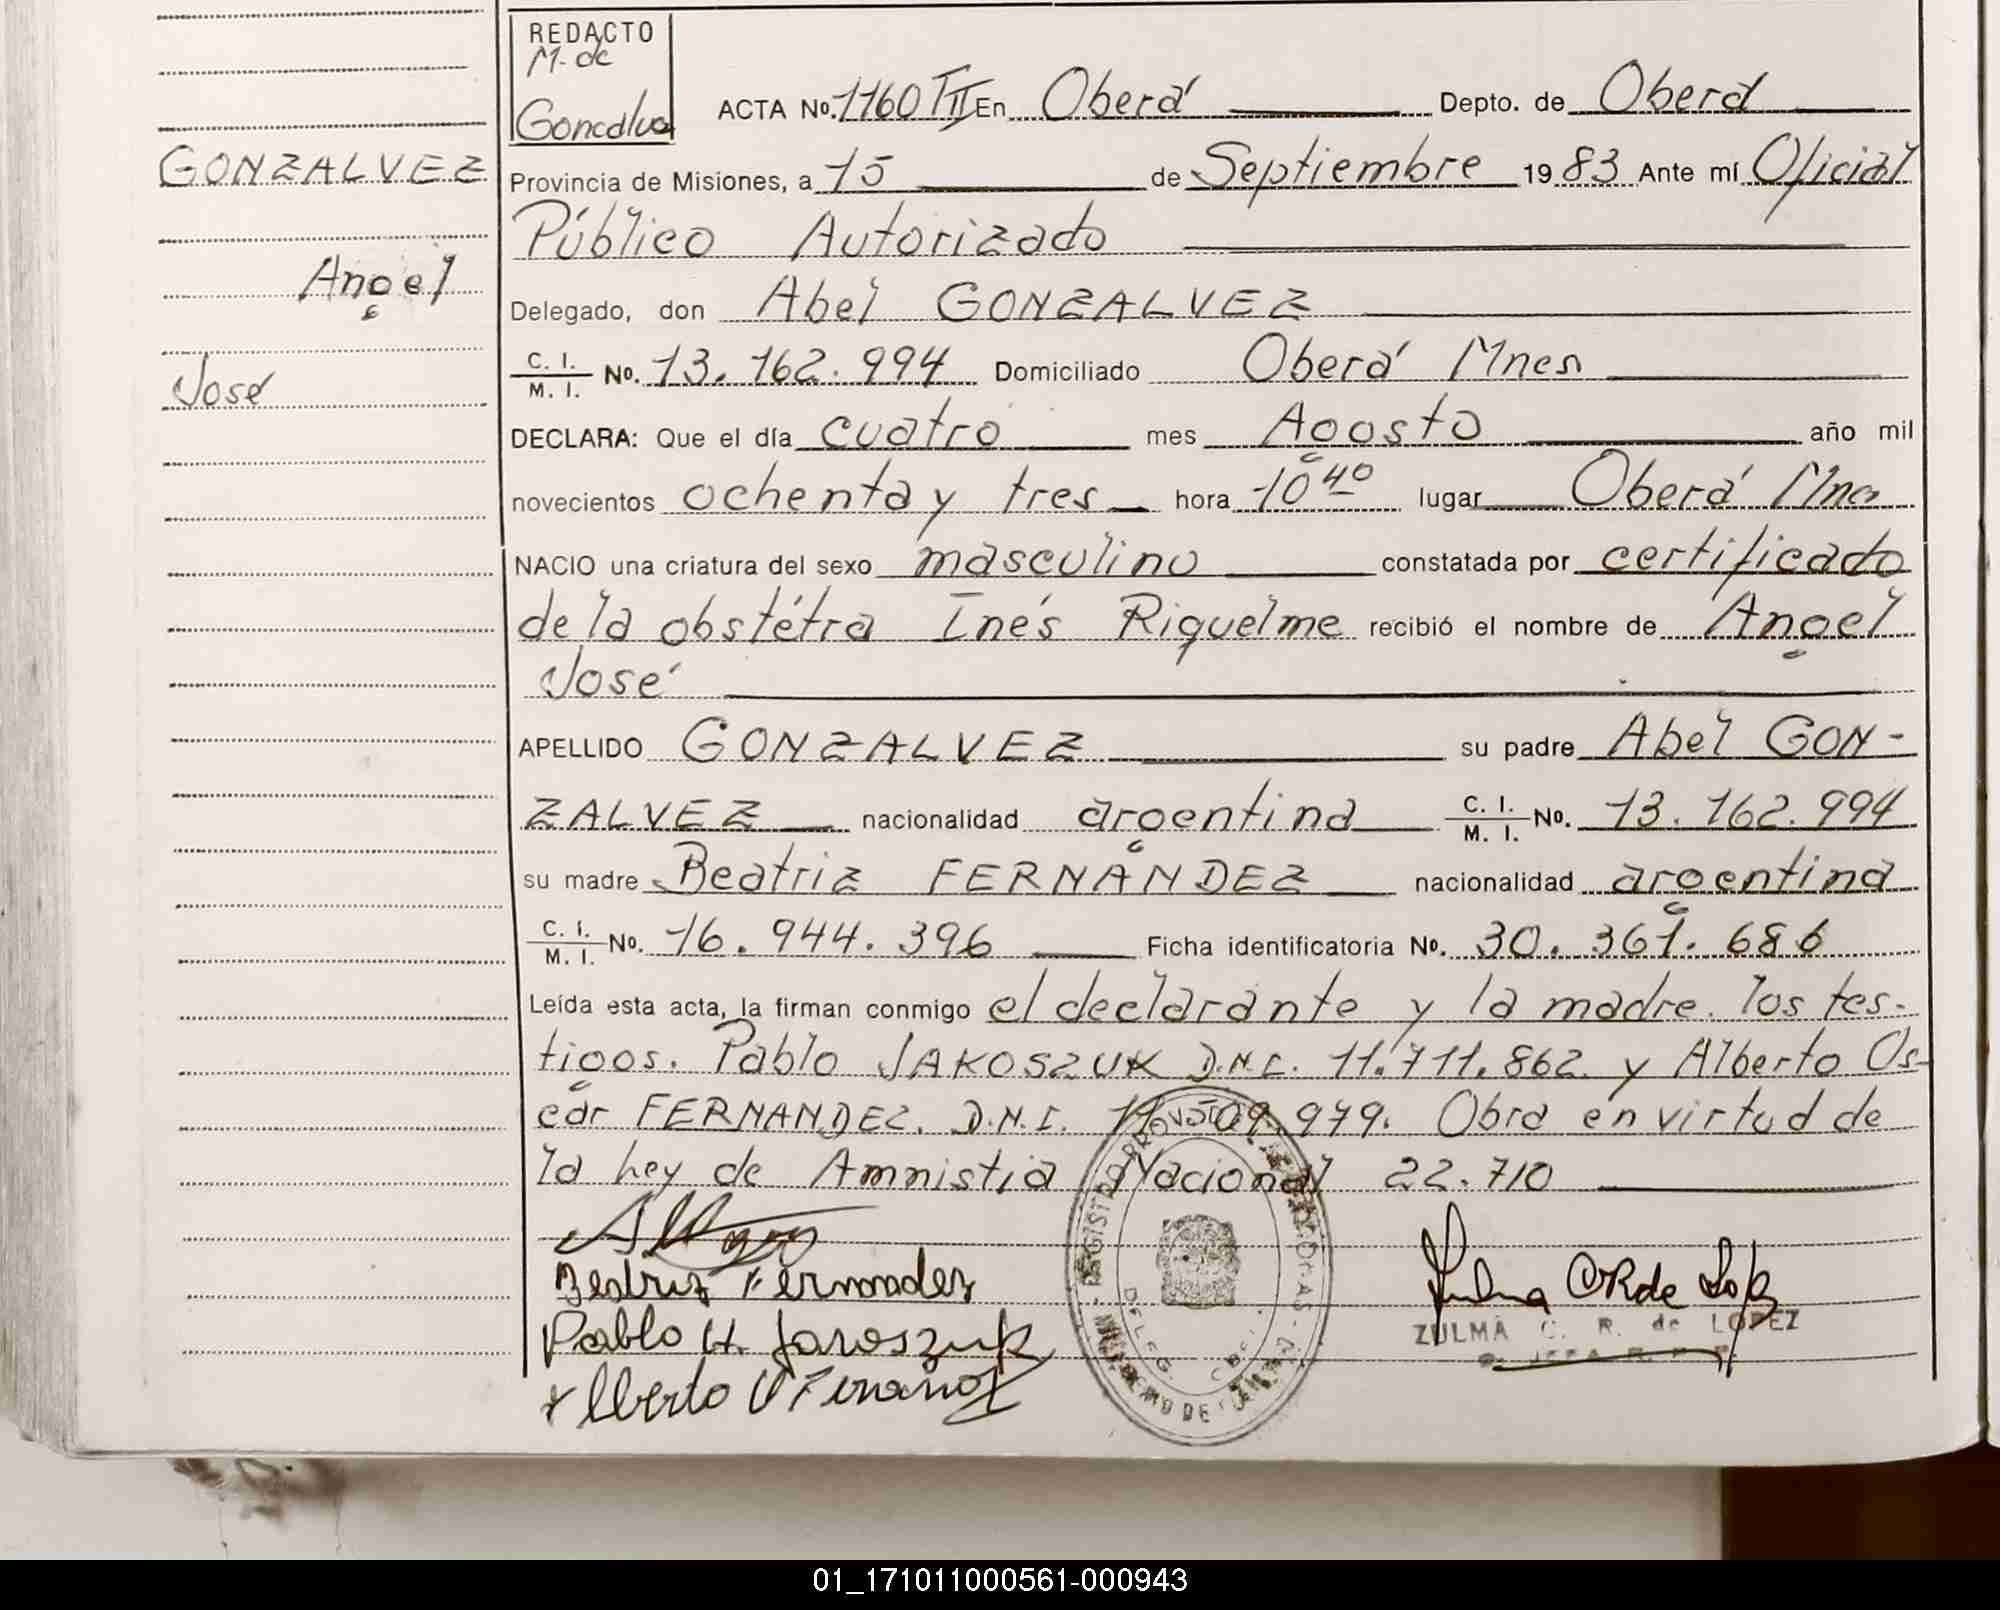 REDACTO
M. de
Goncalvez
ACTA No. 1160 TII En Oberá Depto. de Oberá
GONZALVEZ
Provincia de Misiones, a 15 de Septiembre 1983 Ante mí Oficial
Público Autorizado
Angel
Delegado, don Abel GONZALVEZ
C. I.
M. I. No. 13.162.994 Domiciliado Oberá Mnes
José
DECLARA: Que el día cuatro mes Agosto año mil
novecientos ochenta y tres hora 10 40 lugar Oberá Mnes
NACIO una criatura del sexo masculino constatada por certificado
de la obstétra Inés Riquelme recibió el nombre de Angel
José
APELLIDO GONZALVEZ su padre Abel GON-
ZALVEZ nacionalidad argentina C. I. M. I. No. 13.162.994
su madre Beatriz FERNÁNDEZ nacionalidad argentina
C. I.
M. I. No. 16.944.396 Ficha identificatoria No. 30.361.686
Leída esta acta, la firman conmigo el declarante y la madre. los tes-
tigos. Pablo JAKOSZUK D.N.I. 11.711.862 y Alberto Os-
car FERNANDEZ. D.N.I. 979. Obra en virtud de
la Ley de Amnistia Nacional 22.710
Beatriz Fernandez
Pablo H. Jaroszuk
Alberto O Fernandez
ZULMA C. R. de LOPEZ
01_171011000561-000943